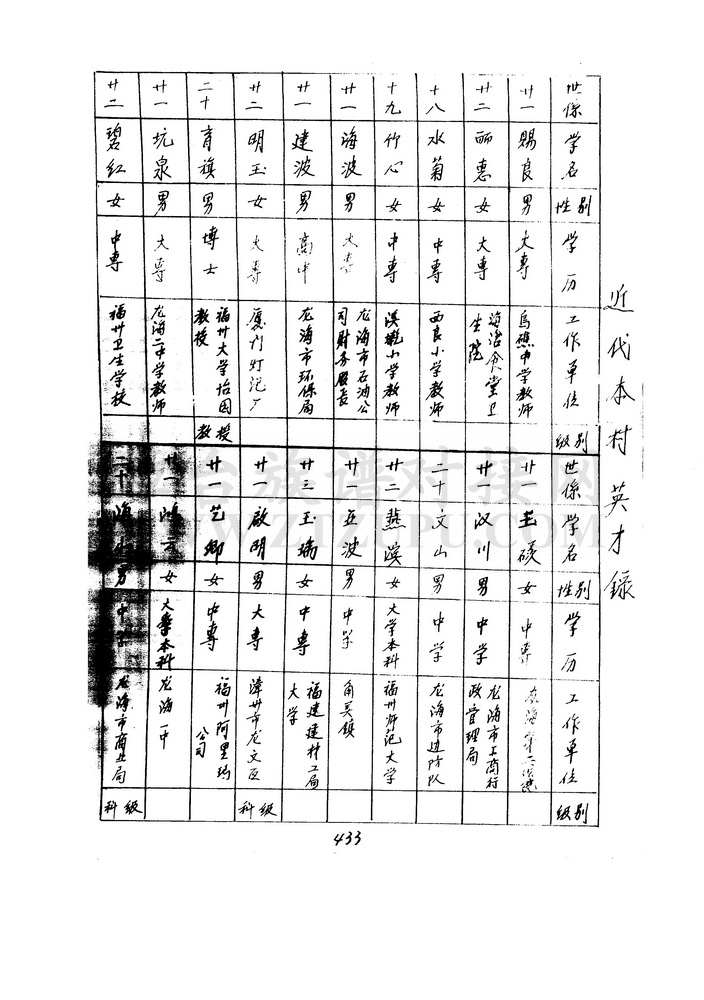 近代本村英才録
世係 学名 性别 学历 工作单位 级别
廿一 赐良 男 大専 烏礁中学教师
廿二 丽惠 女 大専 海沧食堂卫生院
十八 水菊 女 中専 西良小学教师
十九 竹心 女 中専 小学教师
廿一 海波 男 大専 龙海市石油公司财务股长
廿一 建波 男 高中 龙海市环保局
廿二 明玉 女 大専 厦门灯泡厂
二十 育旗 男 博士 福州大学怡园教授 教授
廿一 坑泉 男 大専 龙海二中学教师
廿二 碧红 女 中専 福州卫生学校
世係 学名 性别 学历 工作单位 级别
廿一 女 中専
廿 汉川 男 中学 龙海市工商行政管理局
二十 文山 男 中学 龙海市边防队
廿二 燕滨 女 大学本科 福州师范大学
廿一 亚波 男 中学 角美镇
廿三 玉瑞 女 中専 福建建材工局大学
廿一 啟明 男 大専 漳州市龙文区 科级
廿一 艺卿 女 中専 福州阿里玛公司
廿一 女 大学本科 龙海一中
二十 海山 男 中学 龙海市商业局 科级
433